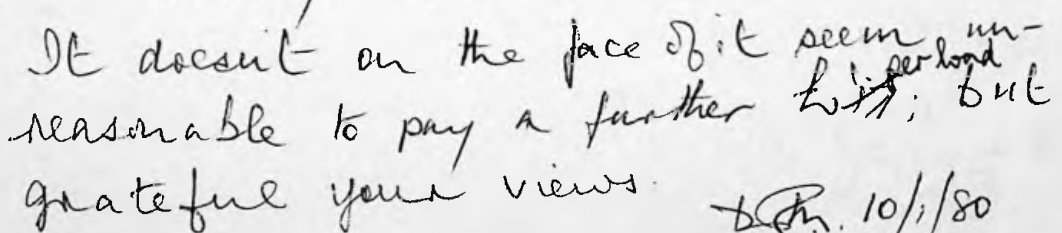 It doesn't on the face of it seem un-
per load
reasonable to pay a further ; but
grateful your views.
10/1/80